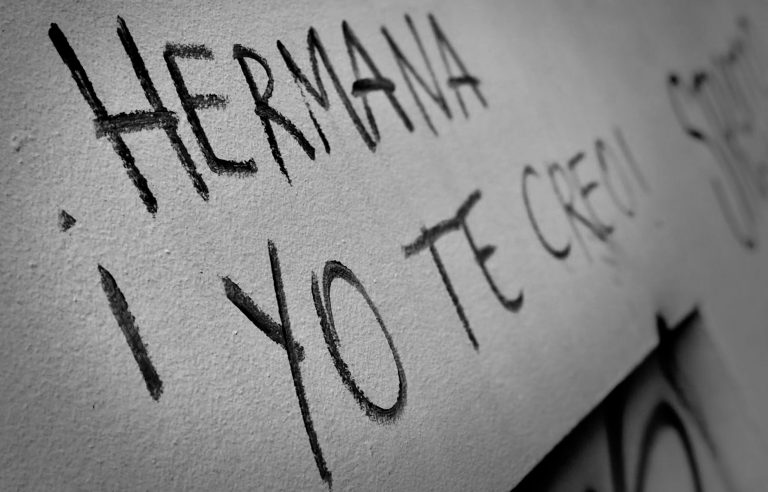 HERMANA
¡YO TE CREO!